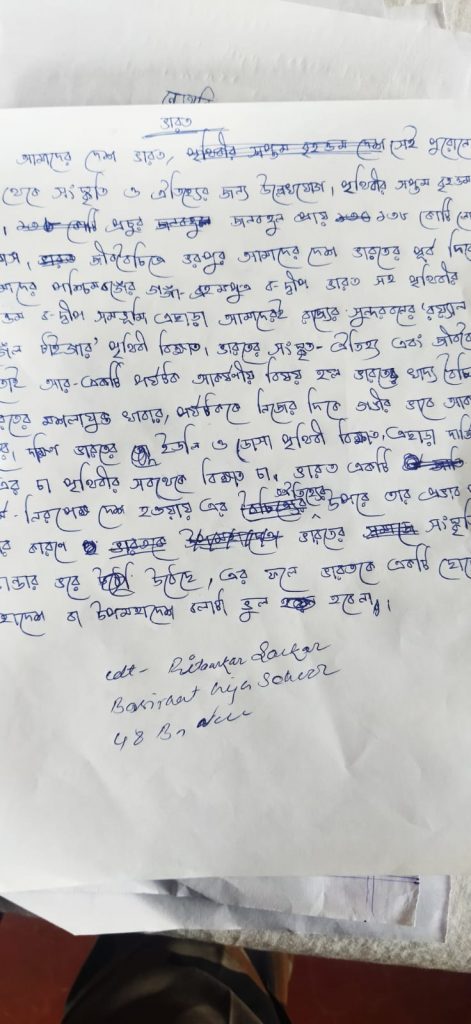 ভারত
আমাদের দেশ ভারত, পৃথিবীর সপ্তম বৃহত্তম দেশ সেই পুরোনো
থেকে সংস্কৃতি ও ঐতিহ্যের জন্য উল্লেখযোগ্য। পৃথিবীর সপ্তম বৃহত্তম
প্রচুর জনবহুল জনবহুল প্রায় ১৩৮ কোটি
জীববৈচিত্রে ভরপুর আমাদের দেশ ভারতের পূর্ব দিকে
পশ্চিমবঙ্গের গঙ্গা-ব্রহ্মপুত্র ব-দ্বীপ ভারত সহ পৃথিবীর
ব-দ্বীপ সমভূমি এছাড়া আমাদেরই রাজ্যের সুন্দরবনের 'রয়্যাল
টাইগার' পৃথিবী বিখ্যাত। ভারতের সংস্কৃত-ঐতিহ্য এবং
আর-একটি পর্যটক আকর্ষণীয় বিষয় হল ভারতের খাদ্য
মশলাযুক্ত খাবার, পর্যটককে নিজের দিকে গভীর ভাবে
দক্ষিণ ভারতের ইডলি ও ডোসা পৃথিবী বিখ্যাত, এছাড়া
চা পৃথিবীর সবথেকে বিখ্যাত চা। ভারত একটি
নিরপেক্ষ দেশ হওয়ায় এর ঐতিহ্যের উপরে তার প্রভাব
কারণে ভারতকে ভারতের সংস্কৃতি
ভরে উঠেছে, এর ফলে ভারতকে একটি
বা উপমহাদেশ বলাটা ভুল হবেনা।
cdt- Sarkar
Basirhat high School
48 Bn ncc